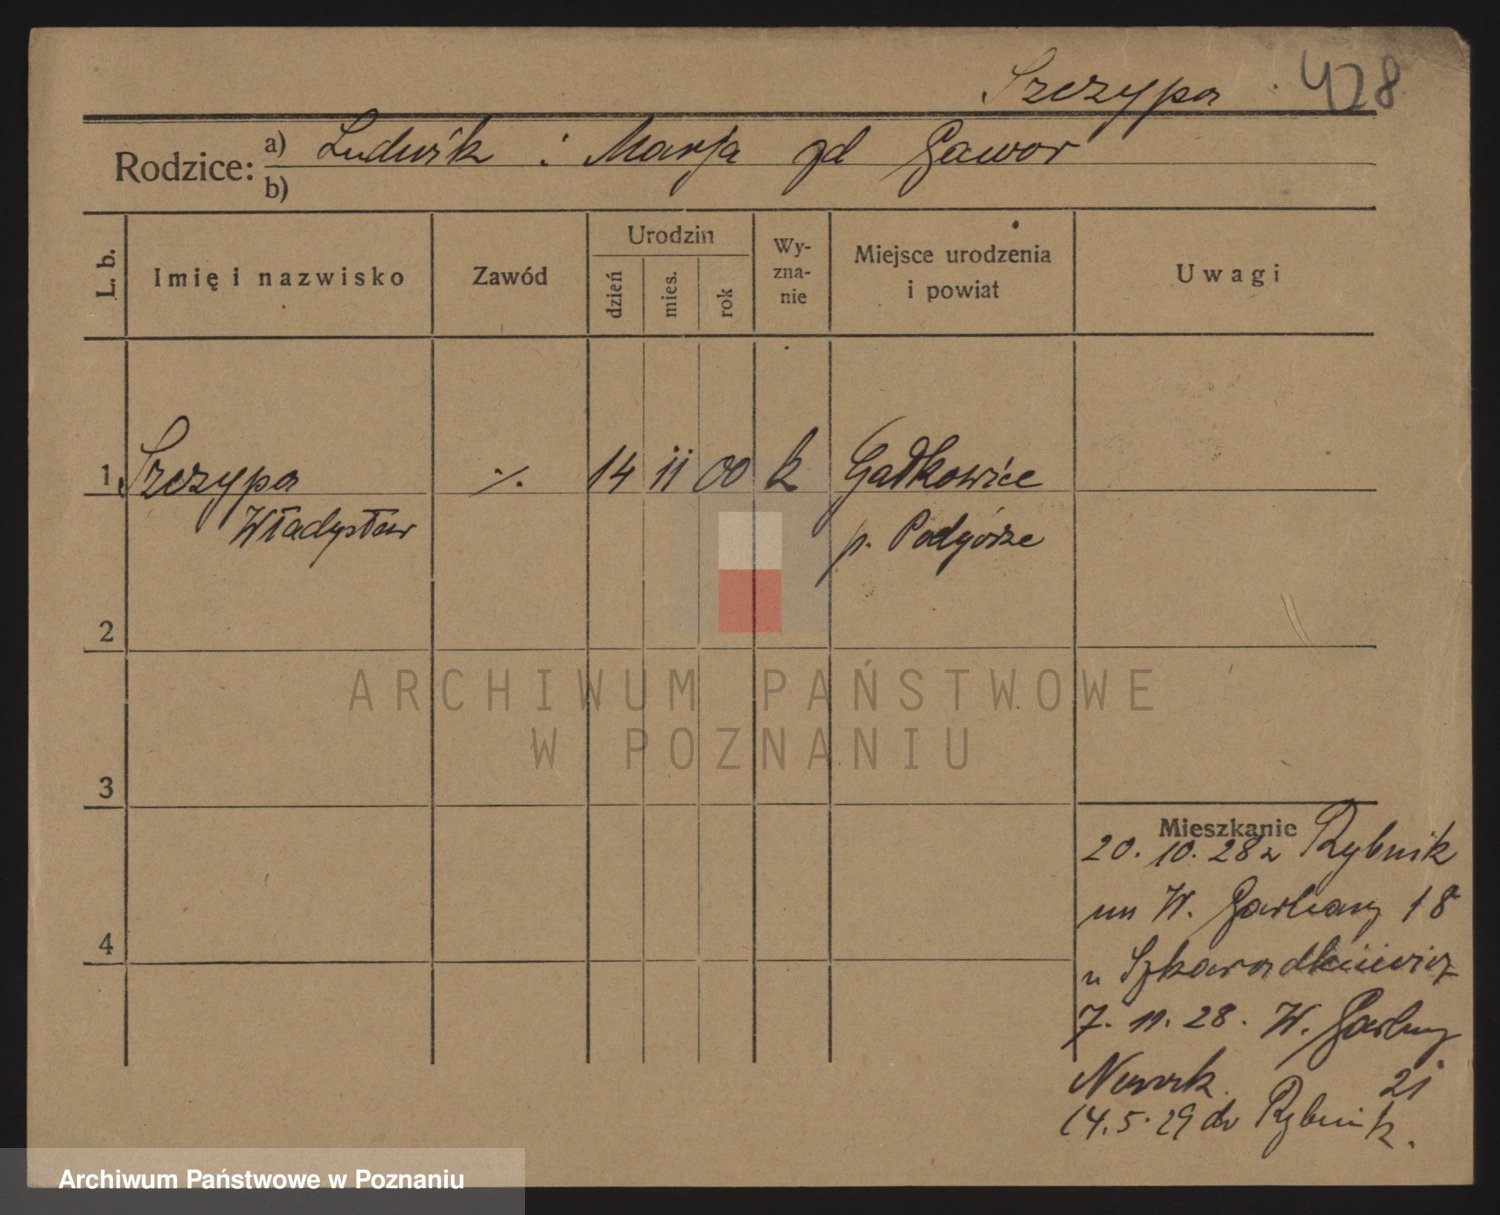 Szczypa 428
Rodzice: a) Ludwik i Marja zd Gawor
b)
L. b. Imię i nazwisko Zawód Urodzin dzień mies. rok Wyznanie Miejsce urodzenia i powiat Uwagi
1 Szczypa ./. 14 11 00 k Gadkowice
Władysław p. Podgórze
2
ARCHIWUM PAŃSTWOWE
W POZNANIU
3
Mieszkanie
20. 10. 28 z Rybnik
na W. Garbary 18
u
7. 11. 28. W. Garbary
Nowak 21
14. 5. 29 do Rybnik.
4
Archiwum Państwowe w Poznaniu